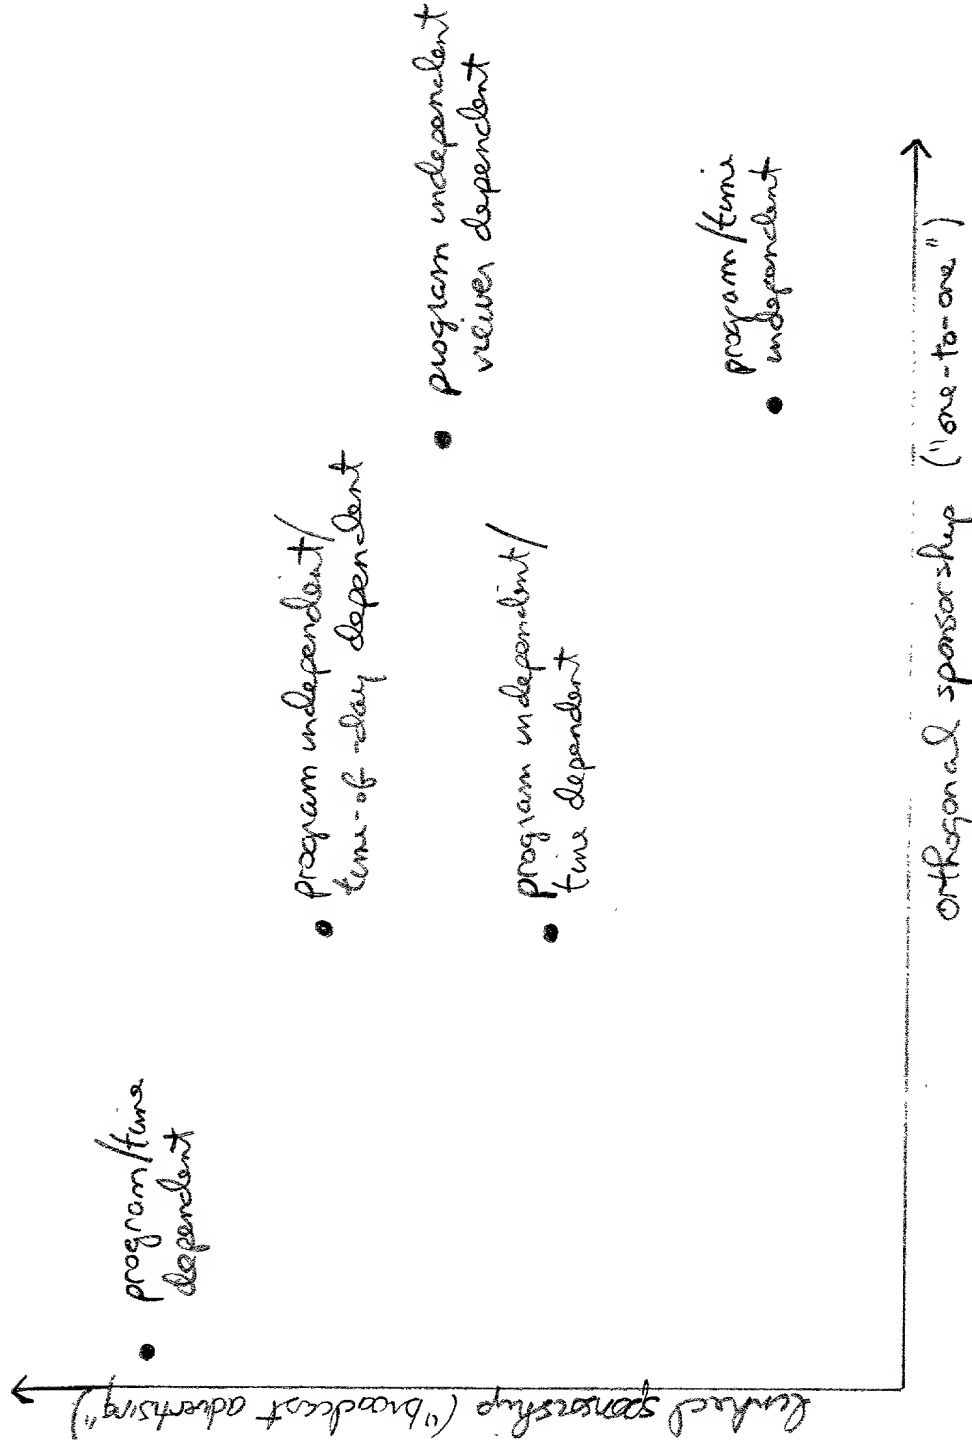 linked sponsorship ("broadcast advertising")
program/time
dependent
program independent/
time-of-day dependent
program independent
viewer dependent
program independent/
time dependent
program/time
independent
orthogonal sponsorship ("one-to-one")